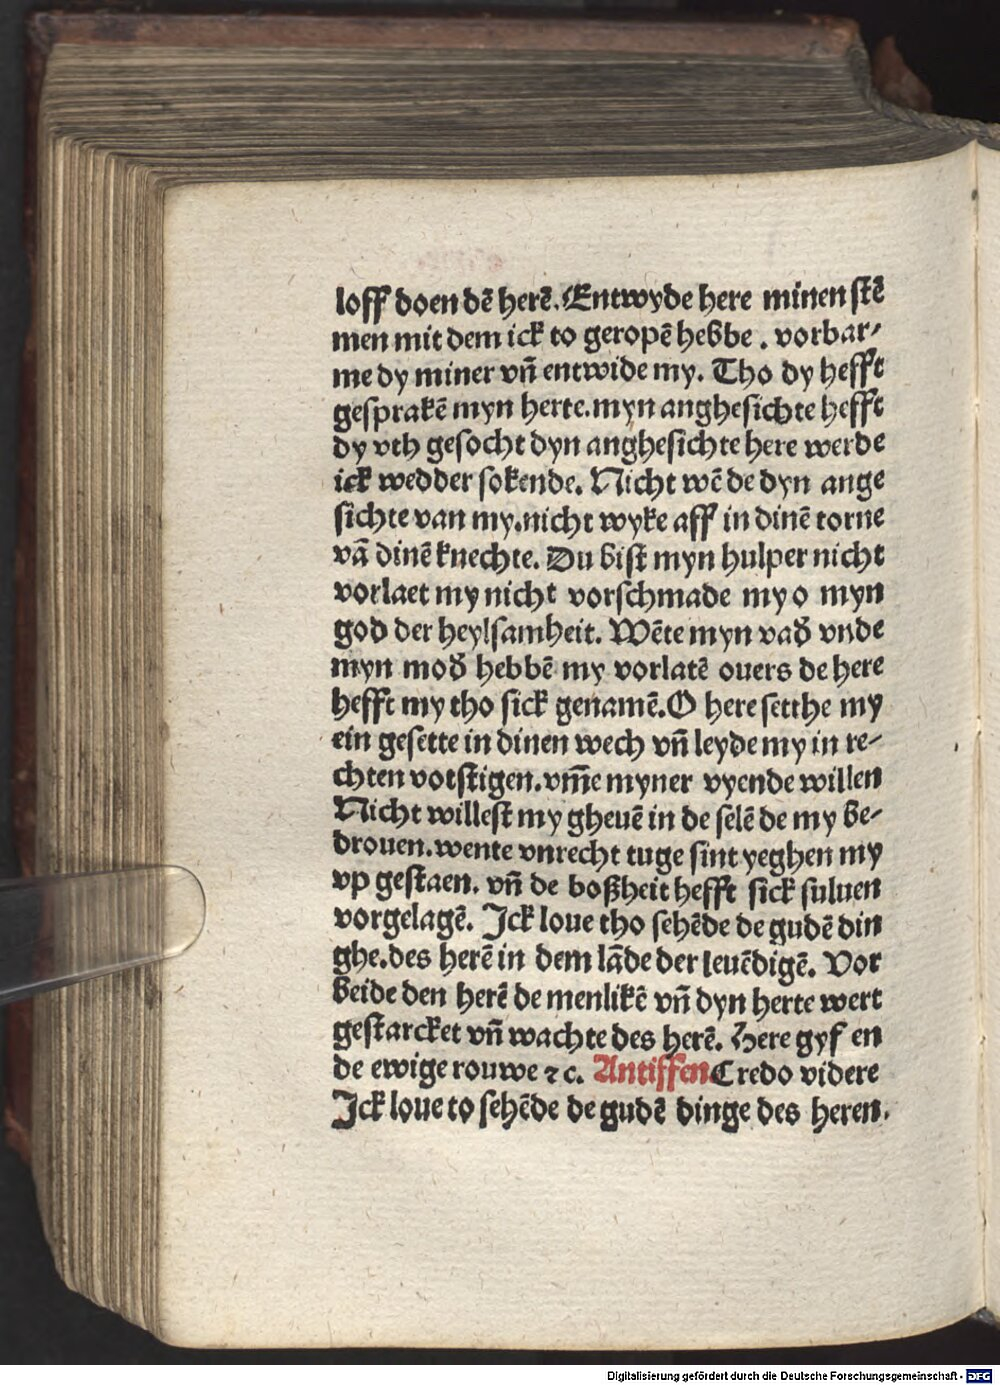 loff doen dē herē. Entwyde here minen stē
men mit dem ick to geropē hebbe . vorbar⸗
me dy miner vn̄ entwide my. Tho dy hefft
gesprakē myn herte. myn anghesichte hefft
dy vth gesocht dyn anghesichte here werde
ick wedder sokende. Nicht wēde dyn ange
sichte van my. nicht wyke aff in dinē torne
vā dinē knechte. Du bist myn hulper nicht
vorlaet my nicht vorschmade my o myn
god der heylsamheit. Wēte myn vad̄ vnde
myn mod̄ hebbē my vorlatē ouers de here
hefft my tho sick genamē. O here setthe my
ein gesette in dinen wech vn̄ leyde my in re⸗
chten votstigen. vm̄e myner vyende willen
Nicht willest my gheuē in de selē de my be⸗
drouen. wente vnrecht tuge sint yeghen my
vp gestaen. vn̄ de boßheit hefft sick suluen
vorgelagē. Ick loue tho sehēde de gudē din
ghe. des herē in dem lāde der leuēdigē. Vor
beide den herē de menlikē vn̄ dyn herte wert
gestarcket vn̄ wachte des herē. Here gyf en
de ewige rouwe ⁊c. Antiffen Credo videre
Ick loue to sehēde de gudē dinge des heren.
Digitalisierung gefördert durch die Deutsche Forschungsgemeinschaft - DFG